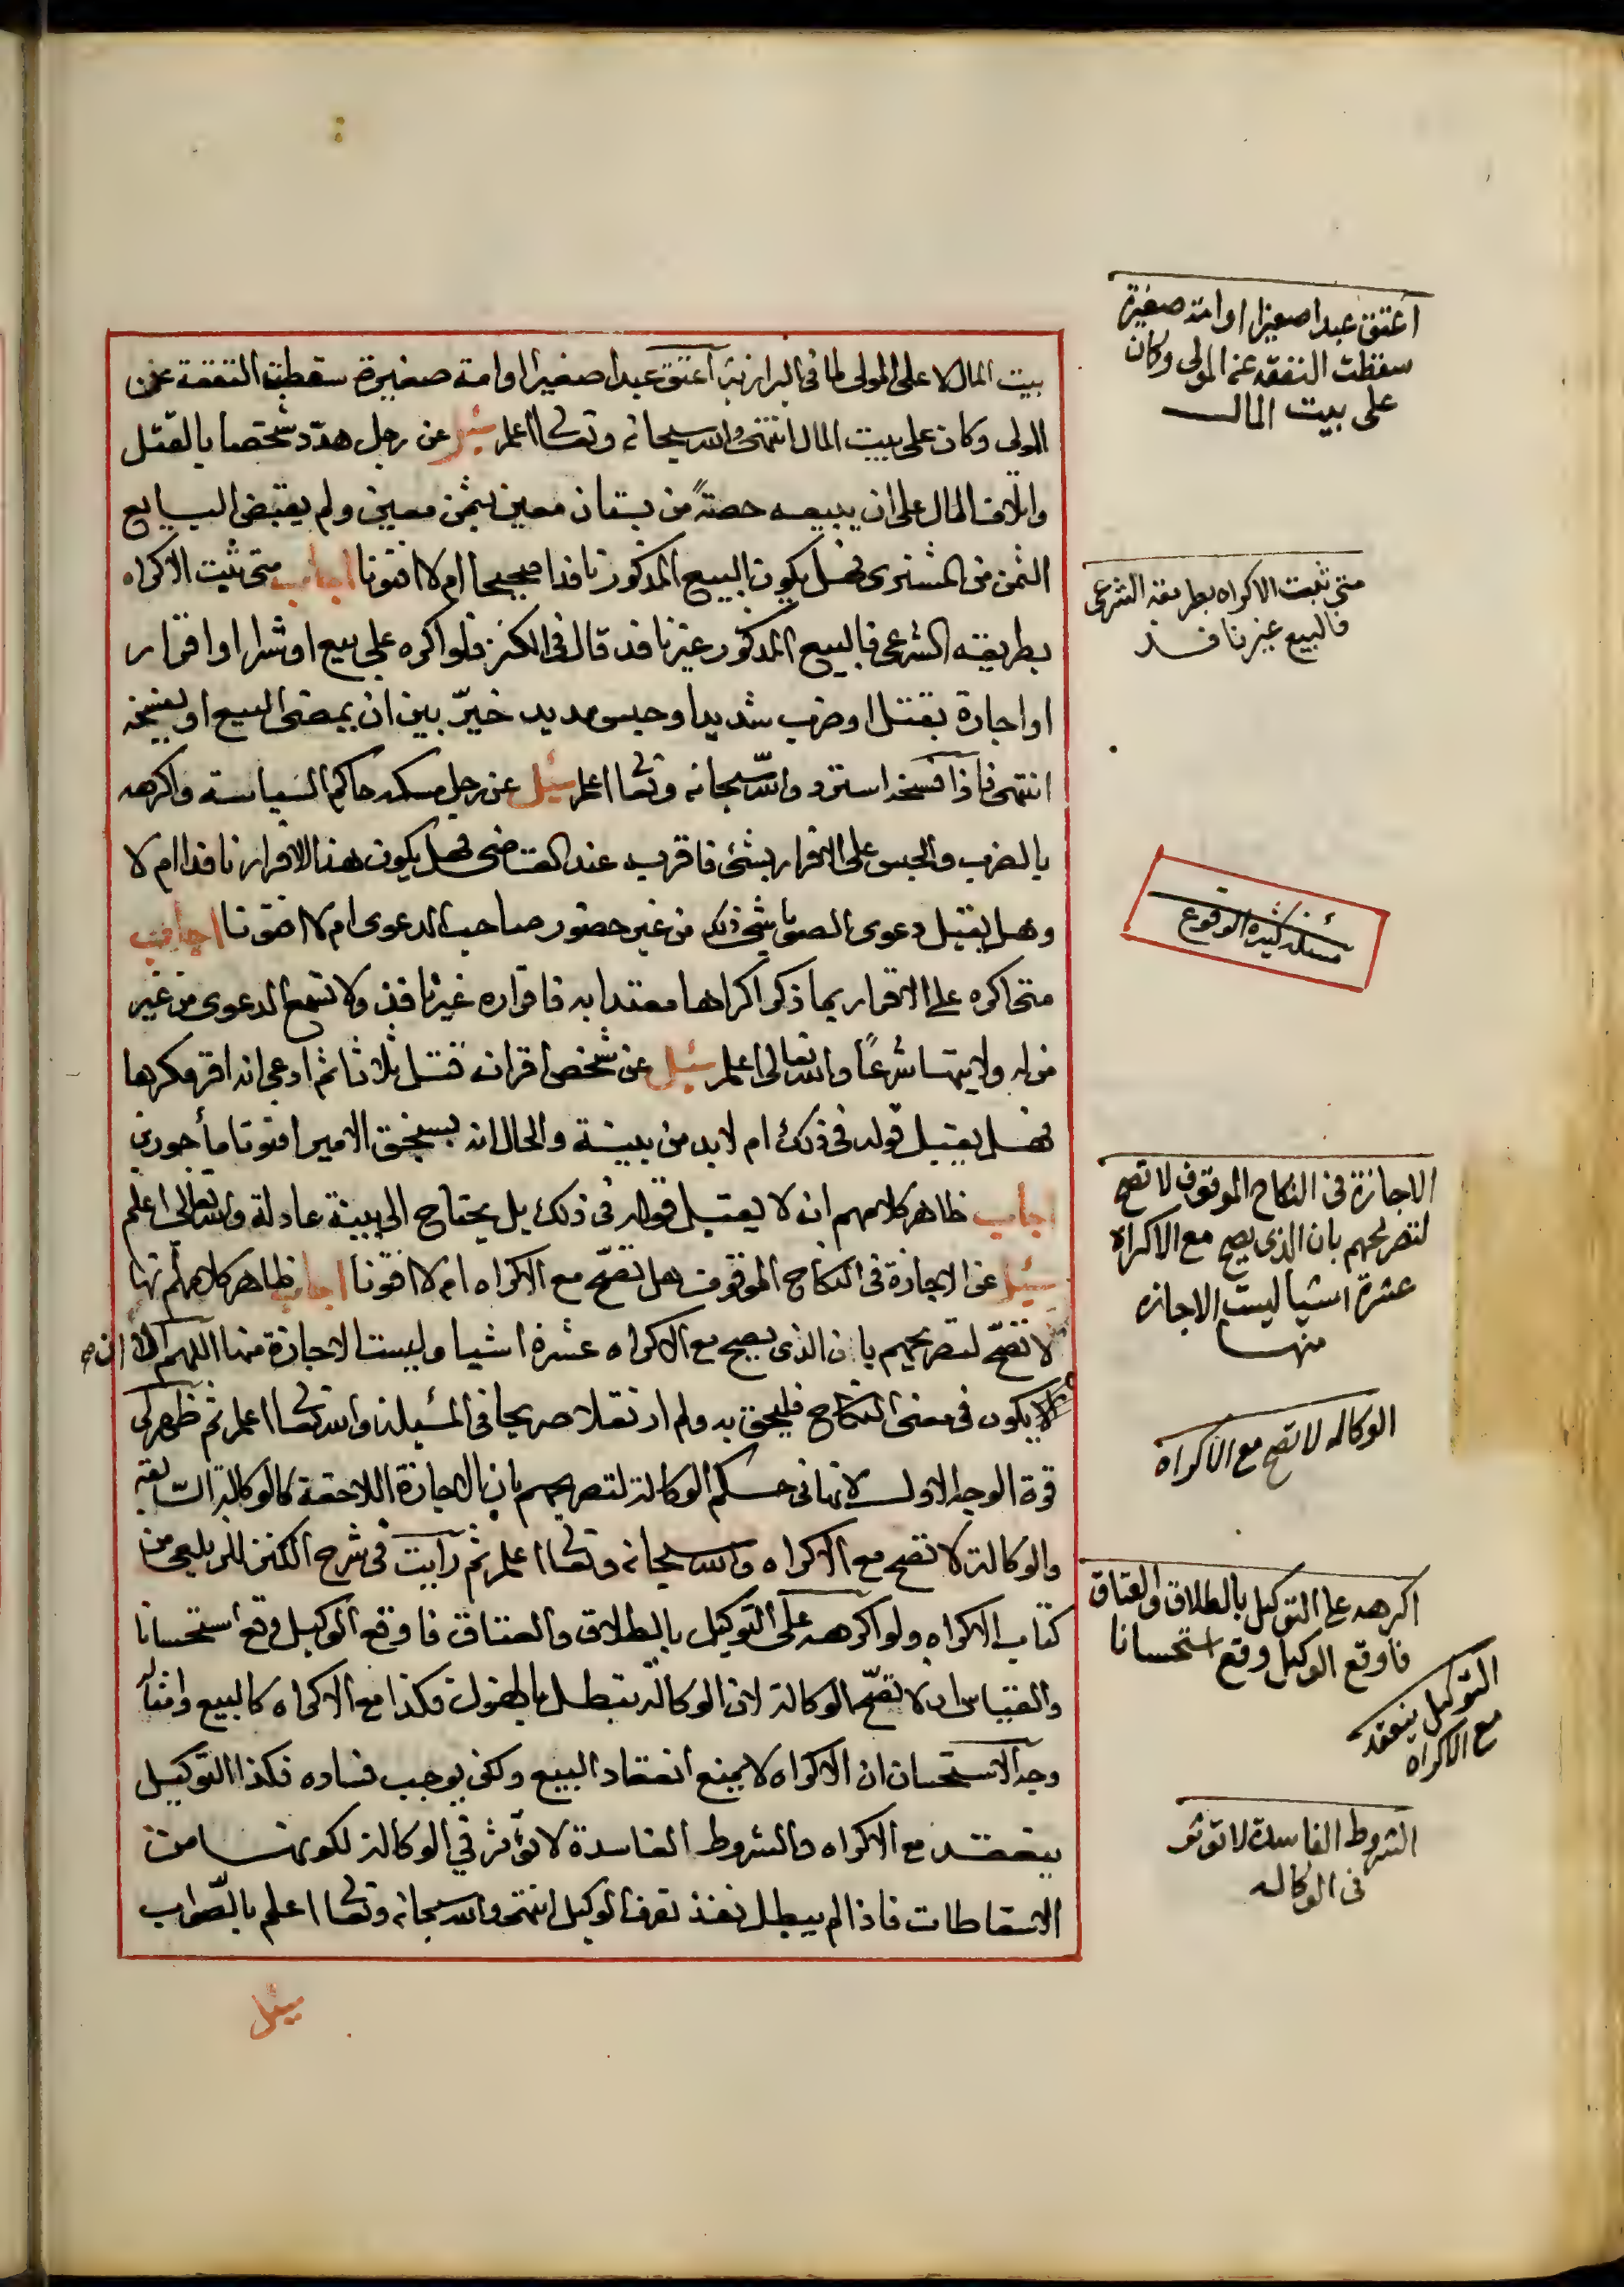 بيت المال لا على المولى لما فى البزازية اعتق عبدا صغيرا او امة صغيرة سقطت النفقة عن
المولى وكان على بيت المال انتهى والله سبحانه وتعالى اعلم سئل عن رجل هدّد شخصا بالقتل
واتلاف المال على ان يبيعه حصةً من بستان معين بثمن معين ولم يقبض البايع
الثمن من المشترى فهل يكون البيع المذكور نافذا صحيحا ام لا افتونا اجاب متى ثبت الاكراه
بطريقه الشرعى فالبيع المذكور غير نافذ قال فى الكنز فلو اكره على بيع او شرا او اقرار
او اجارة بقتل او ضرب شديد او حبس مديد خيّر بين ان يمضى البيع او يفسخه
انتهى فاذا فسخه استرد والله سبحانه وتعالى اعلم سئل عن رجل مسكه حاكم السياسة واكرهه
بالضرب والحبس على الاقرار بشئ فاقر به عند القاضى فهل يكون هذا الاقرار نافذا ام لا
وهل يقبل دعوى الصوباشى ذلك من غير حضور صاحب الدعوى ام لا افتونا اجاب
متى اكره على الاقرار بما ذكر اكراها معتدا به فاقراره غير نافذ ولا تسمع الدعوى من غير
من له ولايتها شرعًا والله تعالى اعلم سئل عن شخص اقر ان قتل ثلاثا ثم ادعى انه اقر مكرها
فهل يقبل قوله فى ذلك ام لا بد من بينة والحال انه بسنجق الامير افتونا مأجورين
اجاب ظاهر كلامهم ان لا يقبل قوله فى ذلك بل يحتاج الى بينة عادلة والله تعالى اعلم
سئل عن الاجازة فى النكاح الموقوف هل تصحّ مع الاكراه ام لا افتونا اجاب ظاهر كلامهم انها
لا تصحّ لتصريحهم بان الذى يصح مع الاكراه عشرة اشيا وليست الاجازة منها اللهم الا ان صح
يكون فى معنى النكاح فليحق به ولم ار نقلا صريحا فى المسئلة والله تعالى اعلم ثم ظهر لى
قوة الوجه الاول لانها فى حكم الوكالة لتصريحهم بان الاجازة اللاحقة كالوكالة السابقة
والوكالة لا تصح مع الاكراه والله سبحانه وتعالى اعلم ثم رايت فى شرح الكنز للزيلعى من
كتاب الاكراه ولو اكرهه على التوكيل بالطلاق والعتاق فاوقع الوكيل وقع استحسانا
والقياس ان لا تصحّ الوكالة لان الوكالة تبطل بالهزل فكذا مع الاكراه كالبيع وامثاله
وجه الاستحسان ان الاكراه لا يمنع انعقاد البيع ولكن يوجب فساده فكذا التوكيل
ينعقد مع الاكراه والشروط الفاسدة لا تؤثر في الوكالة لكونها من
الاسقاطات فاذا لم يبطل نفذ تصرف الوكيل انتهى والله سبحانه وتعالى اعلم بالصّواب
سئل
اعتق عبدا صغيرا او امة صغيرة
سقطت النفقة عن المولى وكان
على بيت المال
متى ثبت الاكراه بطريقه الشرعى
فالبيع غير نافذ
مسئلة كثيرة الوقوع
الاجازة فى النكاح الموقوف لا تصح
لتصريحهم بان الذى يصح مع الاكراه
عشرة اشيا ليست الاجازه
منها
الوكاله لا تصح مع الاكراه
اكرهه على التوكيل بالطلاق والعتاق
فاوقع الوكيل وقع استحسانا
التوكيل ينعقد
مع الاكراه
الشروط الفاسدة لا توثر
فى الوكاله